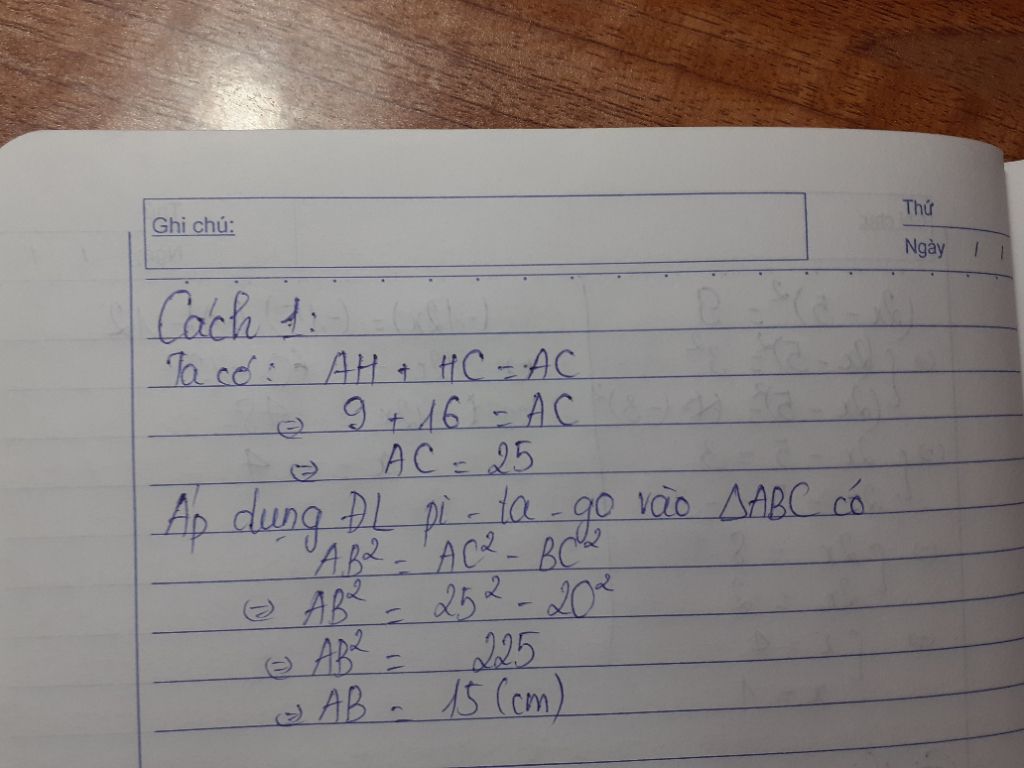 Ghi chú:
Thứ
Ngày / /
Cách 1:
Ta có: AH + HC = AC
⇔ 9 + 16 = AC
⇔ AC = 25
Áp dụng ĐL pi-ta-go vào ΔABC có
AB² = AC² - BC²
⇔ AB² = 25² - 20²
⇔ AB² = 225
⇔ AB = 15 (cm)